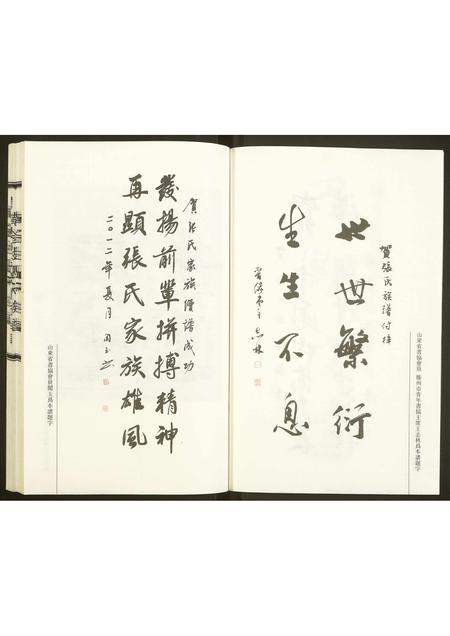 賀張氏族譜付梓
世世繁衍
生生不息
山東省書協會員 滕州市青年書協主席王志林爲本譜題字
賀張氏家族續譜成功
發揚前輩拼搏精神
再顯張氏家族雄風
二〇一二年夏月
山東省書協會員閆玉爲本譜題字